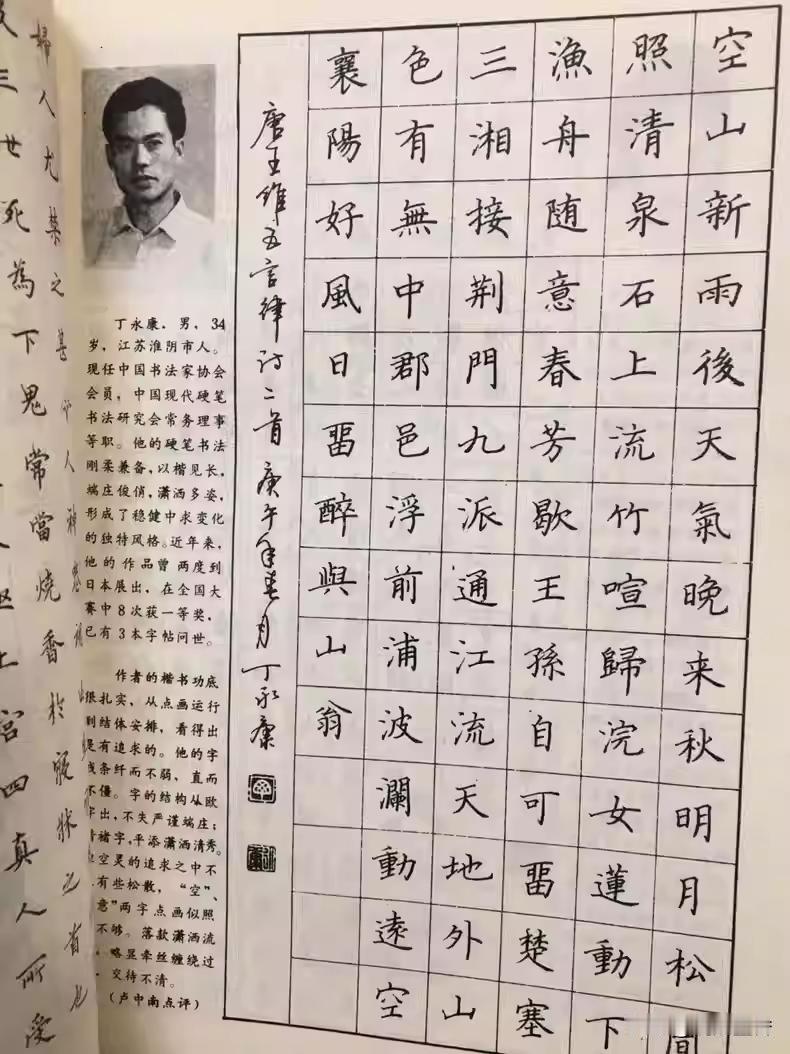 空山新雨後天氣晚来秋明月松間
照清泉石上流竹喧歸浣女蓮動下
漁舟随意春芳歇王孫自可畱楚塞
三湘接荆門九派通江流天地外山
色有無中郡邑浮前浦波瀾動遠空
襄陽好風日畱醉與山翁
唐王維五言律诗二首 庚午年春月 丁永康
丁永康，男，34
岁，江苏淮阴市人。
现任中国书法家协会
会员，中国现代硬笔
书法研究会常务理事
等职。他的硬笔书法
刚柔兼备，以楷见长，
端庄俊俏，潇洒多姿，
形成了稳健中求变化
的独特风格。近年来，
他的作品曾两度到
日本展出，在全国大
赛中8次获一等奖，
已有3本字帖问世。
作者的楷书功底
很扎实，从点画运行
到结体安排，看得出
是有追求的。他的字
线条纤而不弱，直而
不僵。字的结构从欧
字出，不失严谨端庄；
褚字，平添潇洒清秀。
空灵的追求之中不
有些松散，“空”、
意”两字点画似照
不够。落款潇洒流
略显牵丝缠绕过
交待不清。
（卢中南点评）
婦人尤禁之甚
三世死為下鬼常當燒香於寢牀之首
上宮四真人所受